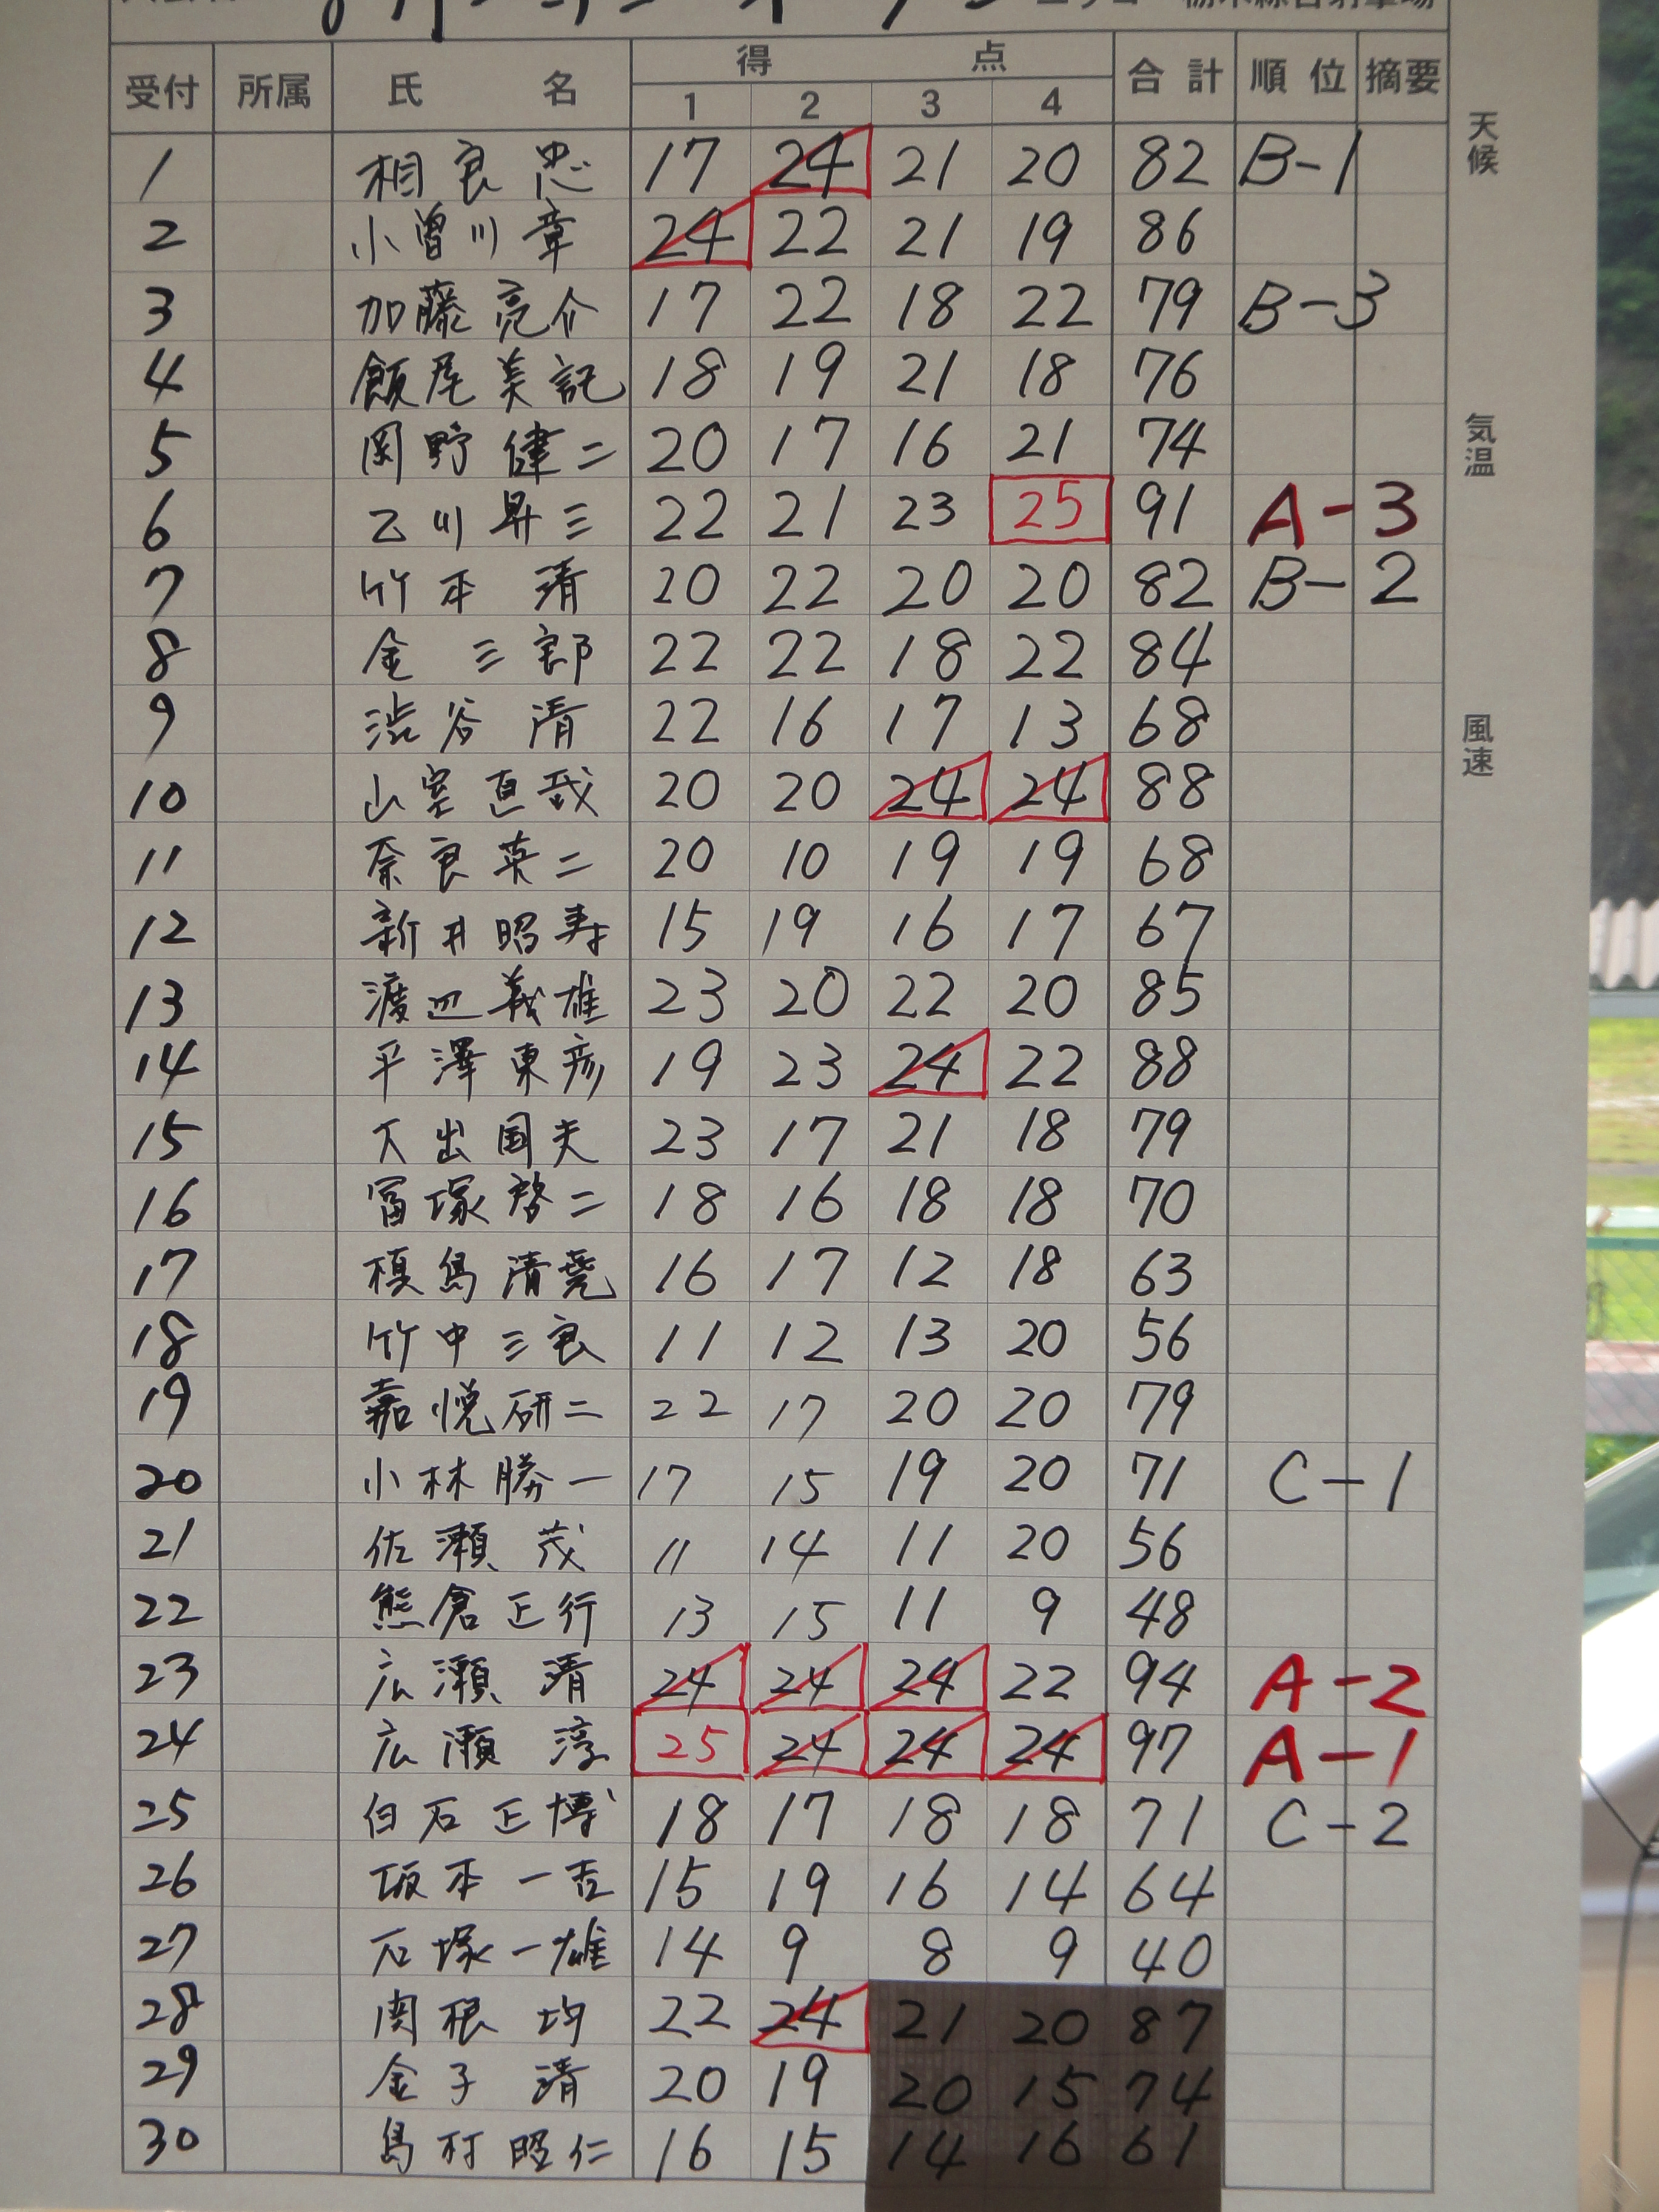 受付 所属 氏 名 得 点 合計 順位 摘要
1 2 3 4
1 相良 忠 17 24 21 20 82 B-1
2 小曽川 章 24 22 21 19 86
3 加藤亮介 17 22 18 22 79 B-3
4 飯尾美記 18 19 21 18 76
5 岡野健二 20 17 16 21 74
6 乙川昇三 22 21 23 25 91 A-3
7 竹本 清 20 22 20 20 82 B-2
8 金 三郎 22 22 18 22 84
9 渋谷 清 22 16 17 13 68
10 山室直哉 20 20 24 24 88
11 奈良英二 20 10 19 19 68
12 新井昭寿 15 19 16 17 67
13 渡辺義雄 23 20 22 20 85
14 平澤東彦 19 23 24 22 88
15 大出国夫 23 17 21 18 79
16 冨塚啓二 18 16 18 18 70
17 槙島清堯 16 17 12 18 63
18 竹中三良 11 12 13 20 56
19 嘉悦研二 22 17 20 20 79
20 小林勝一 17 15 19 20 71 C-1
21 佐瀬 茂 11 14 11 20 56
22 熊倉正行 13 15 11 9 48
23 広瀬 清 24 24 24 22 94 A-2
24 広瀬 淳 25 24 24 24 97 A-1
25 白石正博 18 17 18 18 71 C-2
26 坂本一吉 15 19 16 14 64
27 石塚一雄 14 9 8 9 40
28 関根 均 22 24 21 20 87
29 金子 清 20 19 20 15 74
30 島村昭仁 16 15 14 16 61
天候
気温
風速